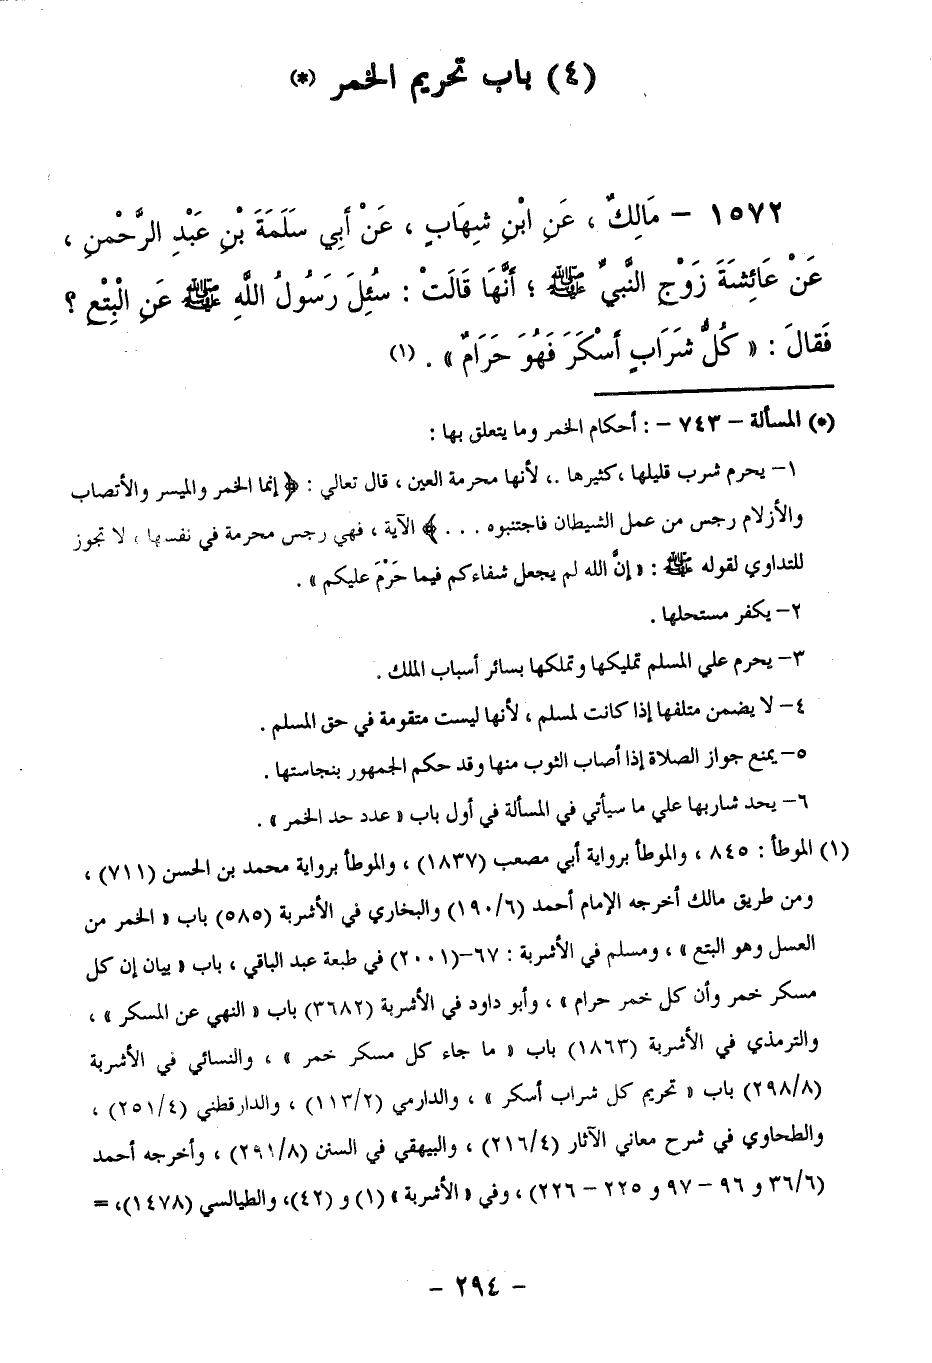 (٤) باب تحريم الخمر (*)
١٥٧٢ – مَالِكٌ ، عَنِ ابْنِ شِهَابٍ ، عَنْ أَبِي سَلَمَةَ بْنِ عَبْدِ الرَّحْمنِ ،
عَنْ عَائِشَةَ زَوْجِ النَّبيِّ ﷺ ؛ أَنَّهَا قَالَتْ : سُئِلَ رَسُولُ اللَّهِ ﷺ عَنِ الْبِتْعِ ؟
فَقَالَ : « كُلُّ شَرَابٍ أَسْكَرَ فَهُوَ حَرَامٌ » . (١)
(*) المسألة – ٧٤٣ – : أحكام الخمر وما يتعلق بها :
١– يحرم شرب قليلها ،كثيرها .، لأنها محرمة العين ، قال تعالي : ﴿ إنما الخمر والميسر والأنصاب
والأزلام رجس من عمل الشيطان فاجتنبوه . . . ﴾ الآية ، فهي رجس محرمة في نفسها ، لا تجوز
للتداوي لقوله ﷺ : « إنَّ الله لم يجعل شفاءكم فيما حَرْمَ عليكم » .
٢– يكفر مستحلها .
٣– يحرم علي المسلم تمليكها وتملكها بسائر أسباب الملك .
٤– لا يضمن متلفها إذا كانت لمسلم ، لأنها ليست متقومة في حق المسلم .
٥– يمنع جواز الصلاة إذا أصاب الثوب منها وقد حكم الجمهور بنجاستها .
٦– يحد شاربها علي ما سيأتي في المسألة في أول باب « عدد حد الخمر » .
(١) الموطأ : ٨٤٥ ، والموطأ برواية أبي مصعب (١٨٣٧) ، والموطأ برواية محمد بن الحسن (٧١١) ،
ومن طريق مالك أخرجه الإمام أحمد (١٩٠/٦) والبخاري في الأشربة (٥٨٥) باب « الخمر من
العسل وهو البتع » ، ومسلم في الأشربة : ٦٧–(٢٠٠١) في طبعة عبد الباقي ، باب « بيان إن كل
مسكر خمر وأن كل خمر حرام » ، وأبو داود في الأشربة (٣٦٨٢) باب « النهي عن المسكر » ،
والترمذي في الأشربة (١٨٦٣) باب « ما جاء كل مسكر خمر » ، والنسائي في الأشربة
(٢٩٨/٨) باب « تحريم كل شراب أسكر » ، والدارمي (١١٣/٢) ، والدارقطني (٢٥١/٤) ،
والطحاوي في شرح معاني الآثار (٢١٦/٤) ، والبيهقي في السنن (٢٩١/٨) ، وأخرجه أحمد
(٣٦/٦ و ٩٦ – ٩٧ و ٢٢٥ – ٢٢٦) ، وفي « الأشربة » (١) و (٤٢)، والطيالسي (١٤٧٨)، =
– ٢٩٤ –